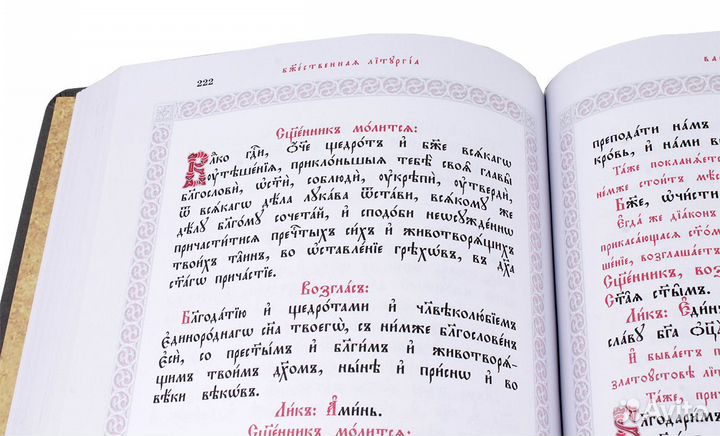 222
бж҃е́ственнаѧ лїтꙋргі́а
Сщ҃е́нникъ мо́литсѧ:
Влⷣко гдⷭ҇и, ѻ҆́ч҃е щедро́тъ и҆ бж҃е всѧ́кагѡ
ᲂу҆тѣше́нїѧ, прикло́ньшыѧ тебѣ̀ своѧ҄ главы҄
блгⷭ҇ови́, ѡ҆ст҃и́, соблюдѝ, ᲂу҆крѣпѝ, ᲂу҆твердѝ,
ѿ всѧ́кагѡ дѣ́ла лꙋка́ва ѿста́ви, всѧ́комꙋ же
дѣ́лꙋ блг҃о́мꙋ сочета́й, и҆ сподо́би неѡсꙋжде́ннѡ
причасти́тисѧ пречⷭ҇тыхъ си́хъ и҆ животворѧ́щихъ
твои́хъ та́инъ, во ѡ҆ставле́нїе грѣхѡ́въ, въ дх҃а
ст҃а́гѡ прича́стїе.
Во́згласъ:
Бл҃года́тїю и҆ щедро́тами и҆ чл҃вѣколю́бїемъ
є҆диноро́днагѡ сн҃а твоегѡ̀, съ ни́мже благослове́нъ
є҆сѝ, со прест҃ы́мъ и҆ бл҃ги́мъ и҆ животворѧ́-
щимъ твои́мъ дх҃омъ, ны́нѣ и҆ при́снѡ и҆ во
вѣ́ки вѣкѡ́въ.
Ли́къ: А҆ми́нь.
Сщ҃е́нникъ мо́литсѧ:
препода́ти на́мъ
кро́вь, и҆ на́ми
Та́же
не́мже стои́тъ
Бж҃е, ѡ҆чи́сти
Е҆гда́ же дїа́конъ
прикаса́ющасѧ
ше́нїе, возглаша́етъ
Сщ҃е́нникъ,
Ст҃а̑ѧ ст҃ы҄мъ.
Ли́къ: Е҆ди́нъ
сла́вꙋ бг҃а
И҆ быва́етъ
златоꙋ́стовѣ
Та́же,
Avito